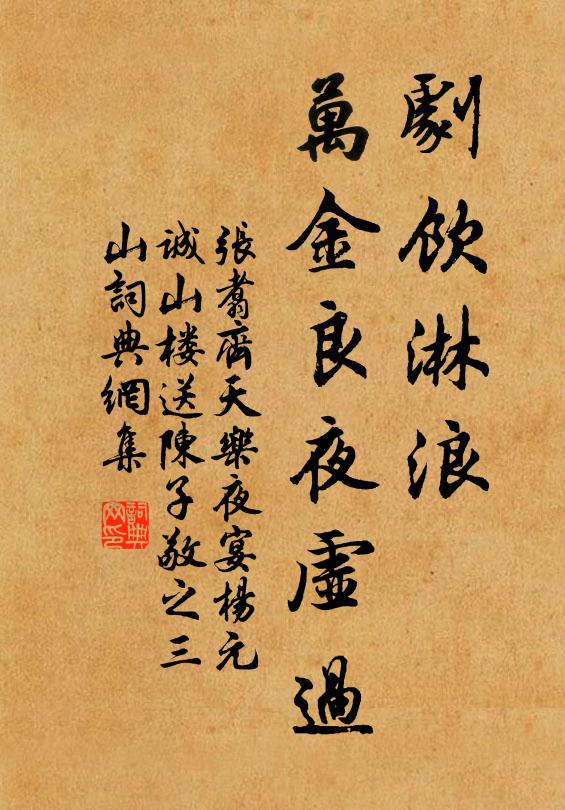 劇飲淋浪
萬金良夜虛過
張翥齊天樂夜宴楊元
誠山楼送陳子敬之三
山詞典網集
詞典
网印